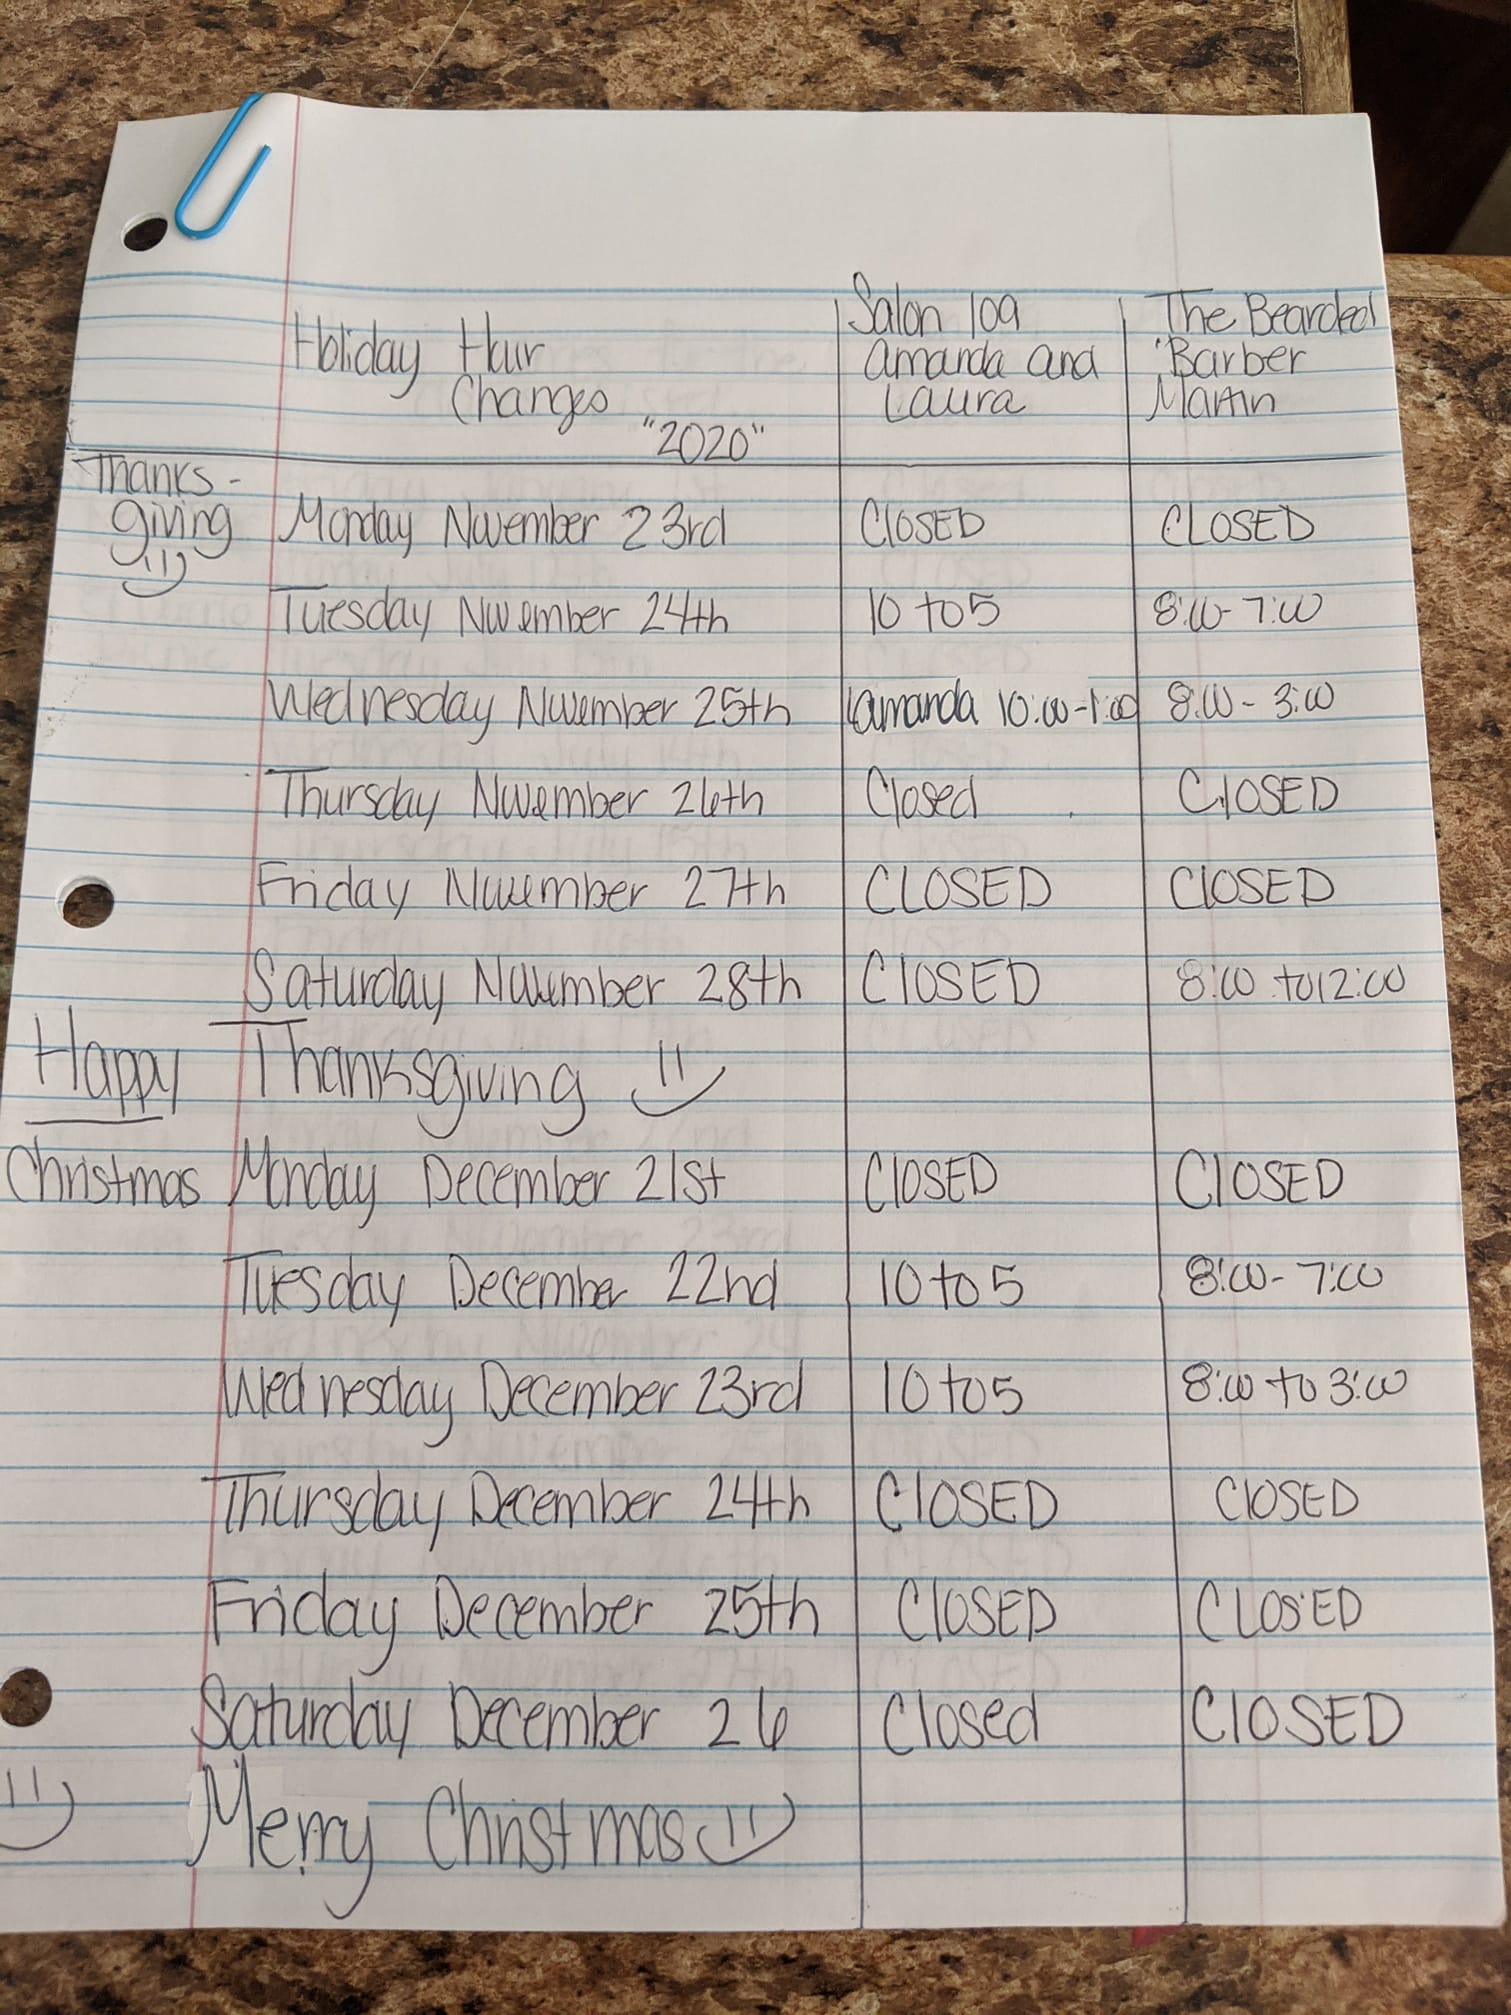 Holiday Hour Changes "2020" | Salon 109 Amanda and Laura | The Bearded Barber Martin
Thanks-giving Monday November 23rd | CLOSED | CLOSED
Tuesday November 24th | 10 to 5 | 8:00-7:00
Wednesday November 25th | Amanda 10:00-1:00 | 8:00-3:00
Thursday November 26th | Closed | CLOSED
Friday November 27th | CLOSED | CLOSED
Saturday November 28th | CLOSED | 8:00 to 12:00
Happy Thanksgiving
Christmas Monday December 21st | CLOSED | CLOSED
Tuesday December 22nd | 10 to 5 | 8:00-7:00
Wednesday December 23rd | 10 to 5 | 8:00 to 3:00
Thursday December 24th | CLOSED | CLOSED
Friday December 25th | CLOSED | CLOSED
Saturday December 26 | Closed | CLOSED
Merry Christmas